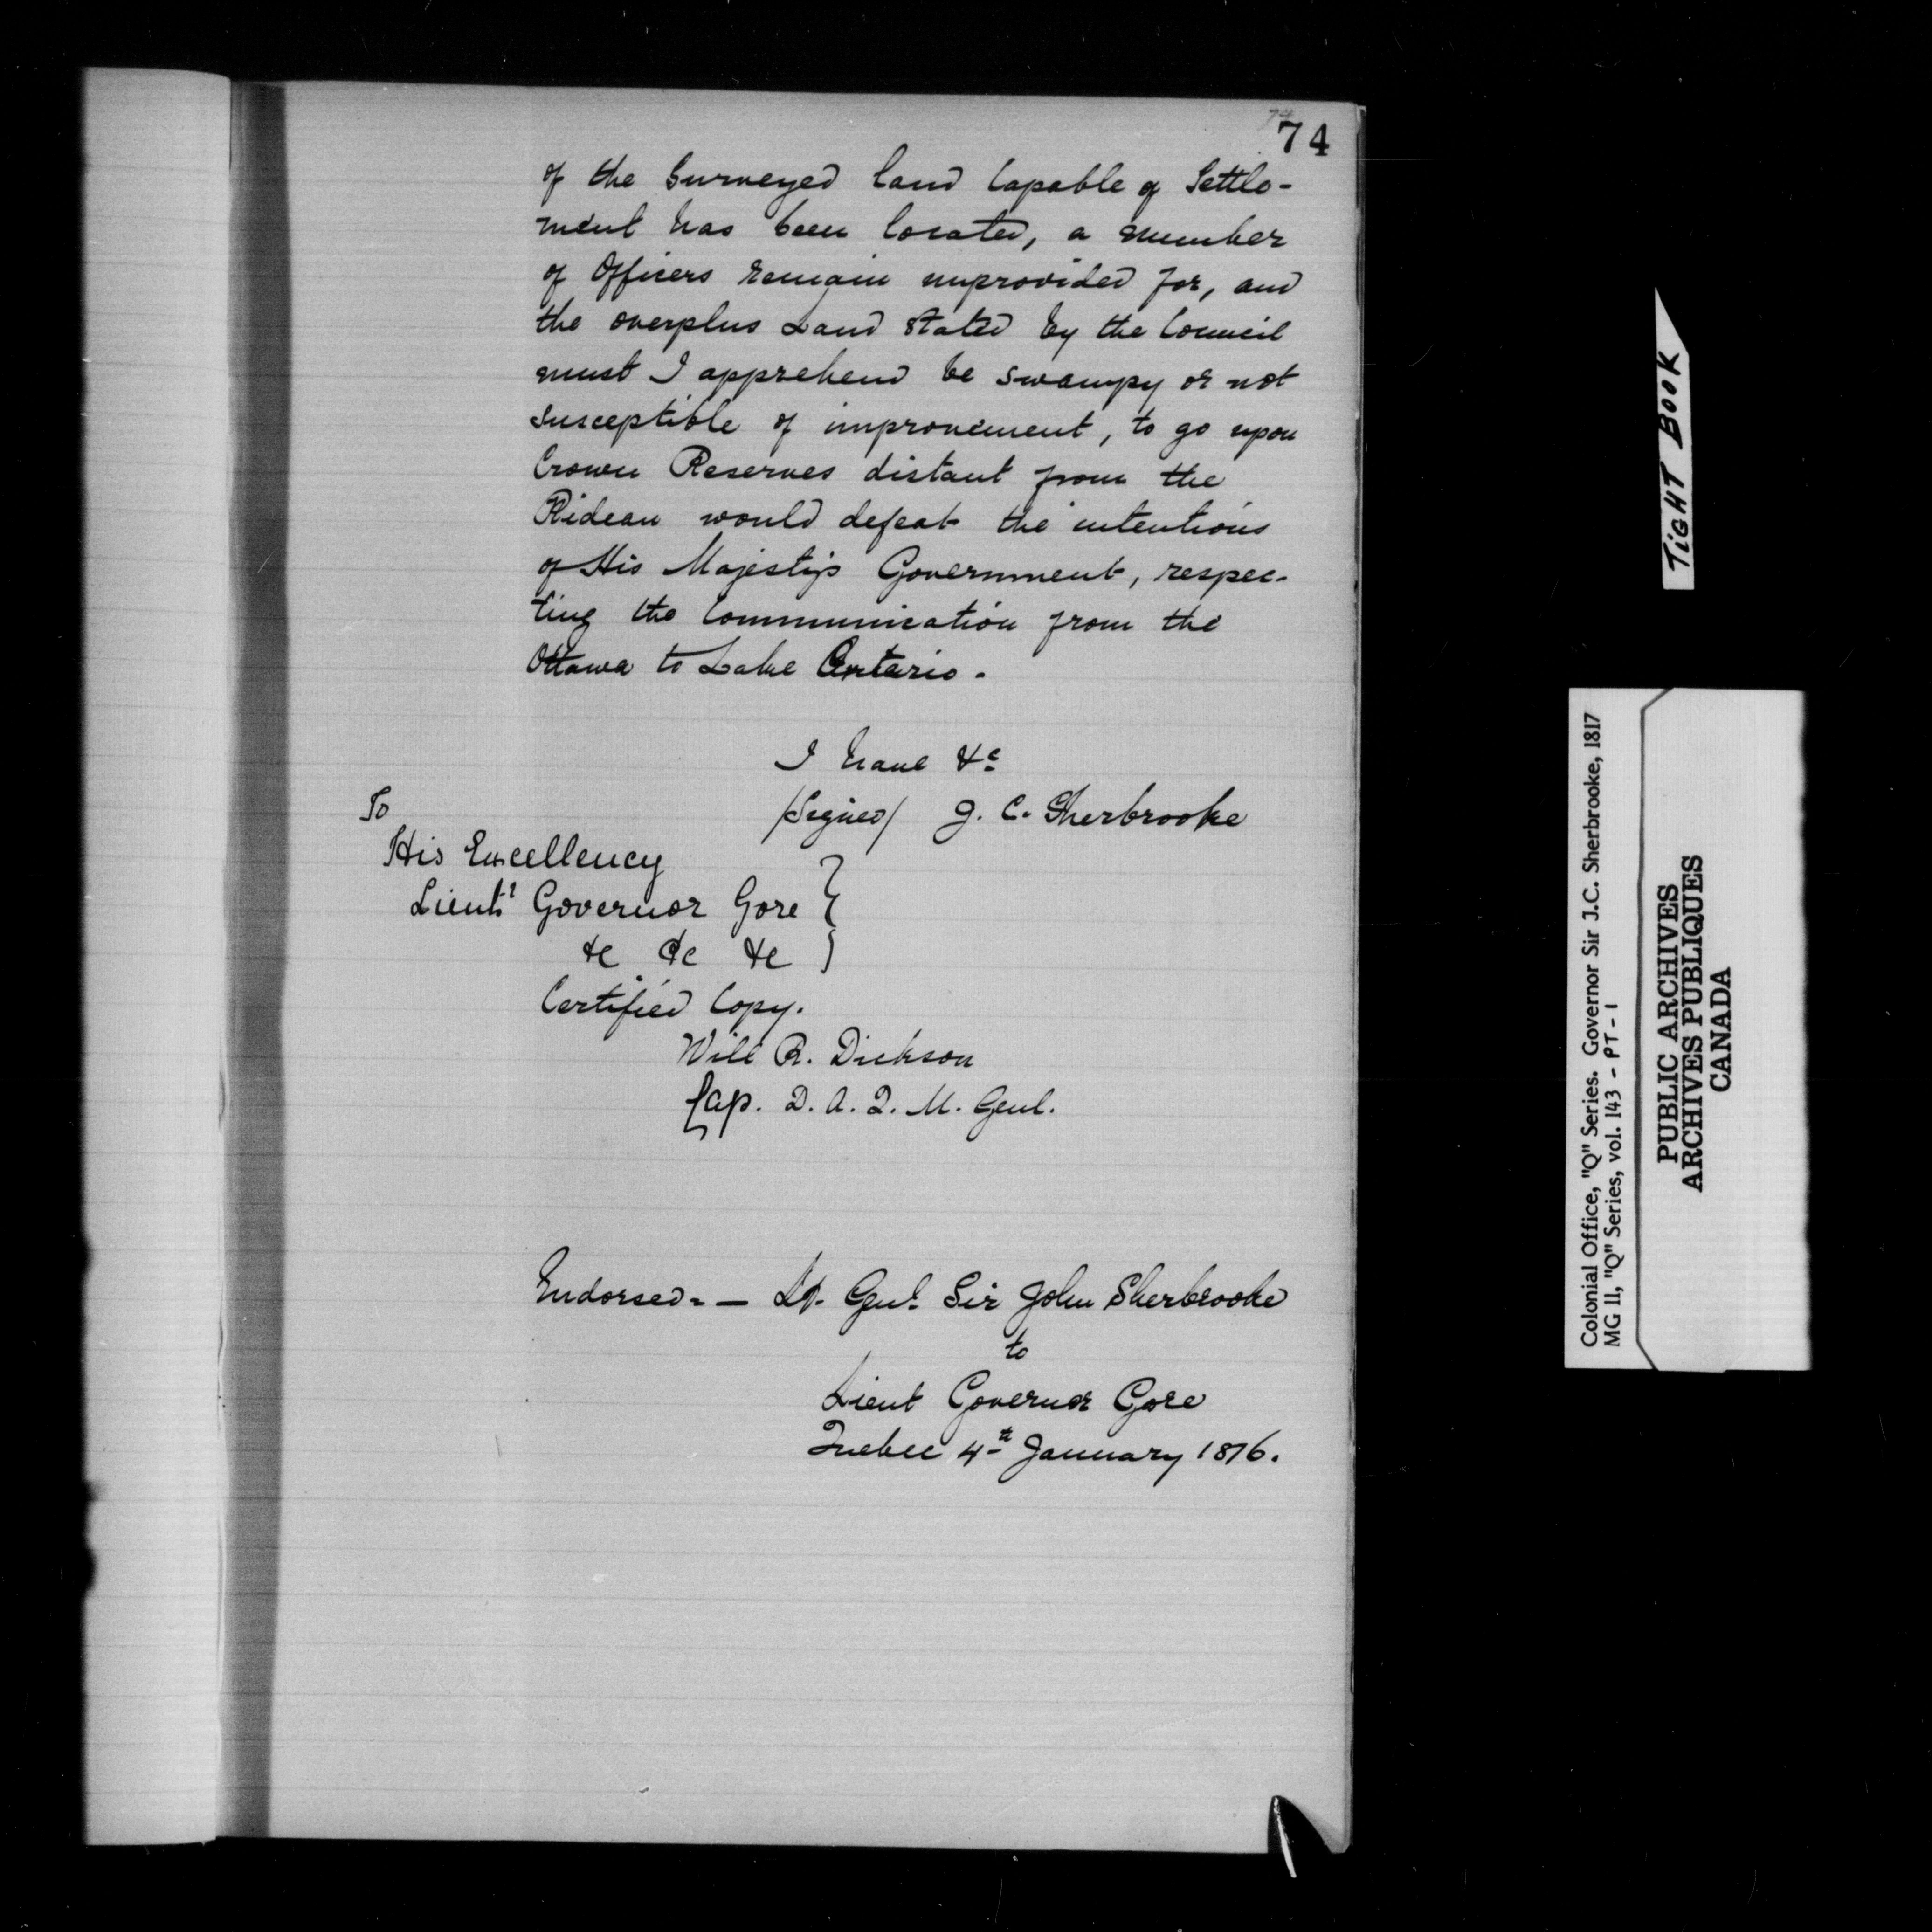 74
74
of the Surveyed land Capable of Settle-
ment has been located, a number
of Officers remain unprovided for, and
the overplus Land stated by the Council
must I apprehend be swampy or not
susceptible of improvement, to go upon
Crown Reserves distant from the
Rideau would defeat the intentions
of His Majesty's Government, respec-
ting the Communication from the
Ottawa to Lake Ontario.
I have &c
/Signed/ J. C. Sherbrooke
To
His Excellency
Lieut. Governor Gore
&c &c &c
Certified Copy.
Will R. Dickson
Cap. D. A. Q. M. Genl.
Endorsed. — Lt. Genl. Sir John Sherbrooke
to
Lieut Governor Gore
Quebec 4th January 1816.
TIGHT BOOK
Colonial Office, "Q" Series. Governor Sir J.C. Sherbrooke, 1817
MG 11, "Q" Series, vol. 143 - PT - 1
PUBLIC ARCHIVES
ARCHIVES PUBLIQUES
CANADA